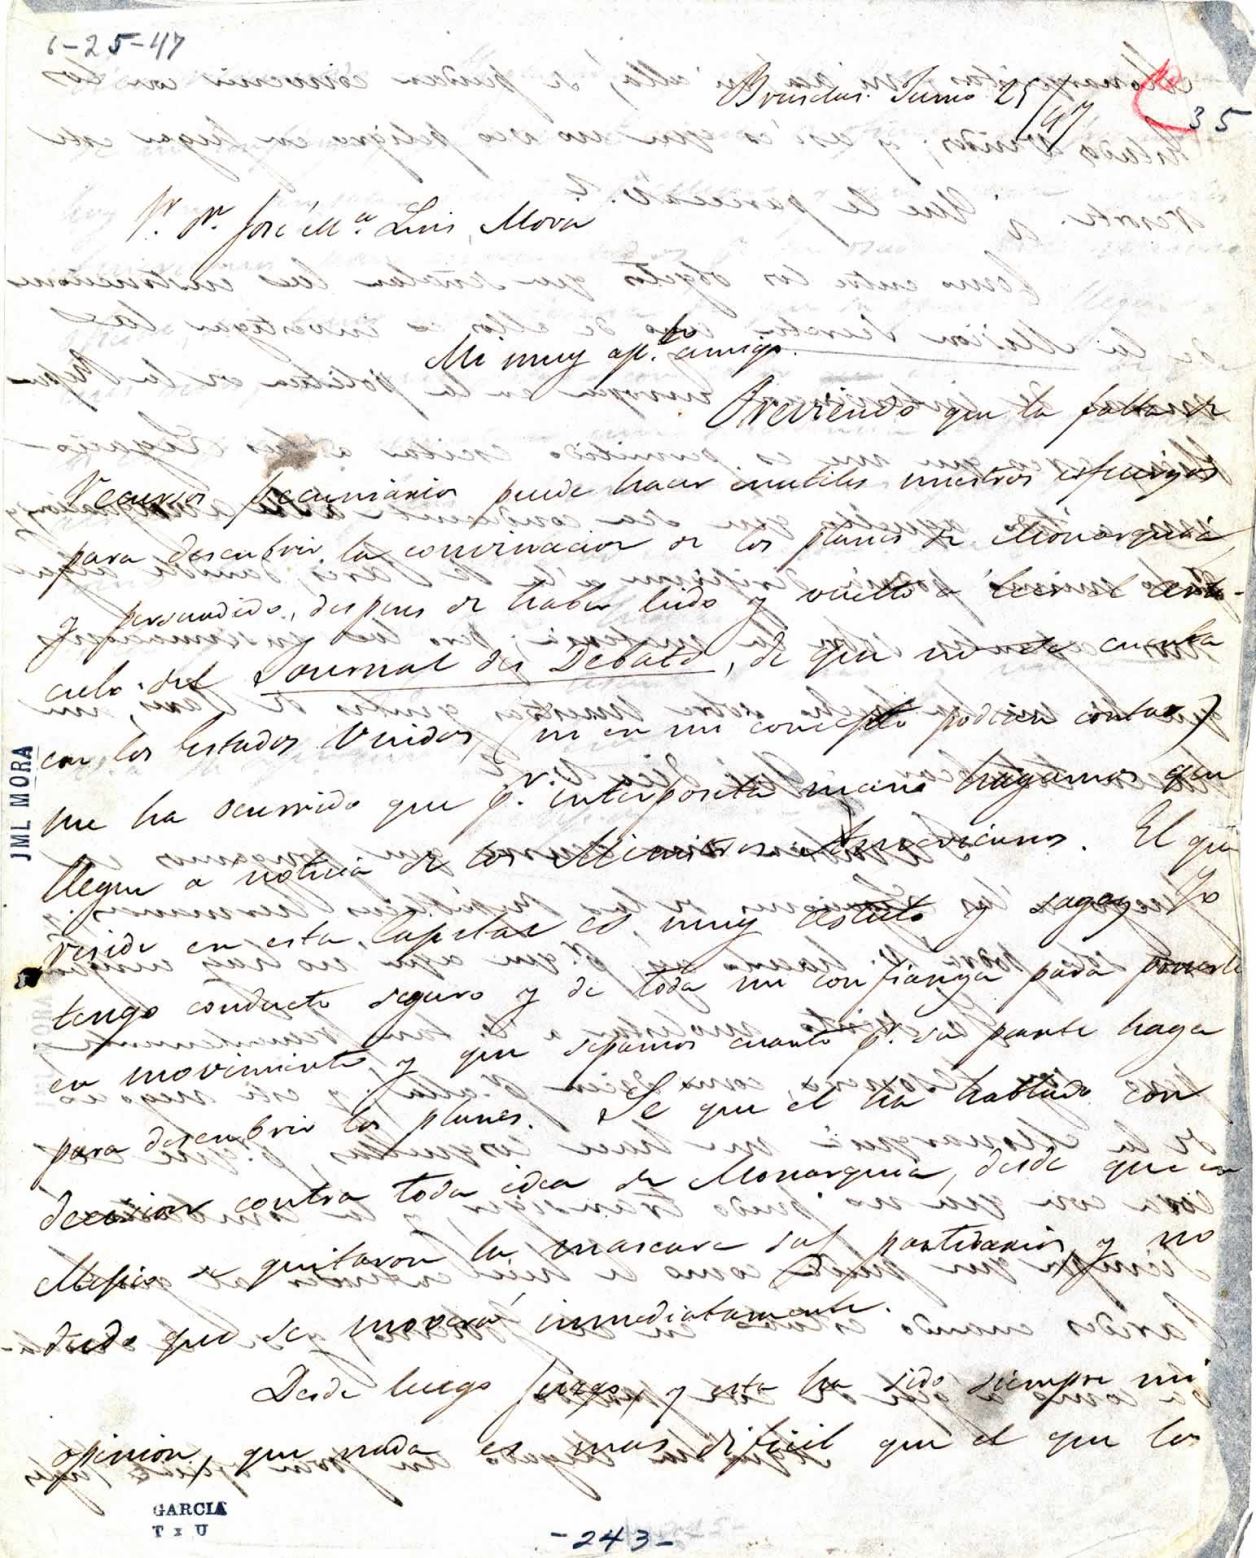 6-25-47
Bruselas. Junio 25/47
35
Sr. Dr. José Ma. Luis Mora
Mi muy apdo. amigo.
Previendo que la falta de
recursos pecuniarios puede hacer inutiles nuestros esfuerzos
para descubrir la convinacion de los planes de Monarquia,
y persuadido, despues de haber leido y vuelto a leer el arti-
culo del Journal des Debats, de que no se cuenta
con los Estados Unidos (ni en mi concepto podrian contar)
me ha ocurrido que pr. interposita mano hagamos que
llegue a noticia de los Ministros Americanos. El que
reside en esta Capital es muy astuto y sagaz. Yo
tengo conducto seguro y de toda mi confianza para ponerle
en movimiento, y que sepamos cuanto pr. su parte haga
para descubrir los planes. Se que el ha hablado con
decision contra toda idea de Monarquia, desde que en
Mejico se quitaron la mascara sus partidarios, y no
dudo que se moverá inmediatamente.
Desde luego juzgo, y esta ha sido siempre mi
opinion, que nada es mas dificil que el que los
JML MORA
GARCIA
T x U
-243-